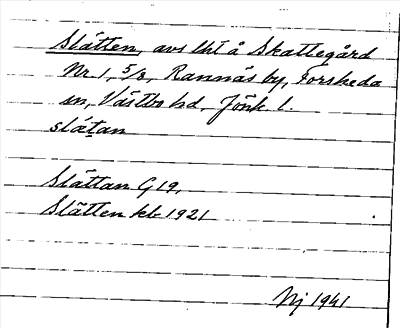 Slätten, avs lht å Skattegård
Nr 1, 5/8, Rannäs by, Forsheda
sn, Västbo hd, Jönk. l.
slätan
Slättan G19,
Slätten kb 1921
Nj 1941